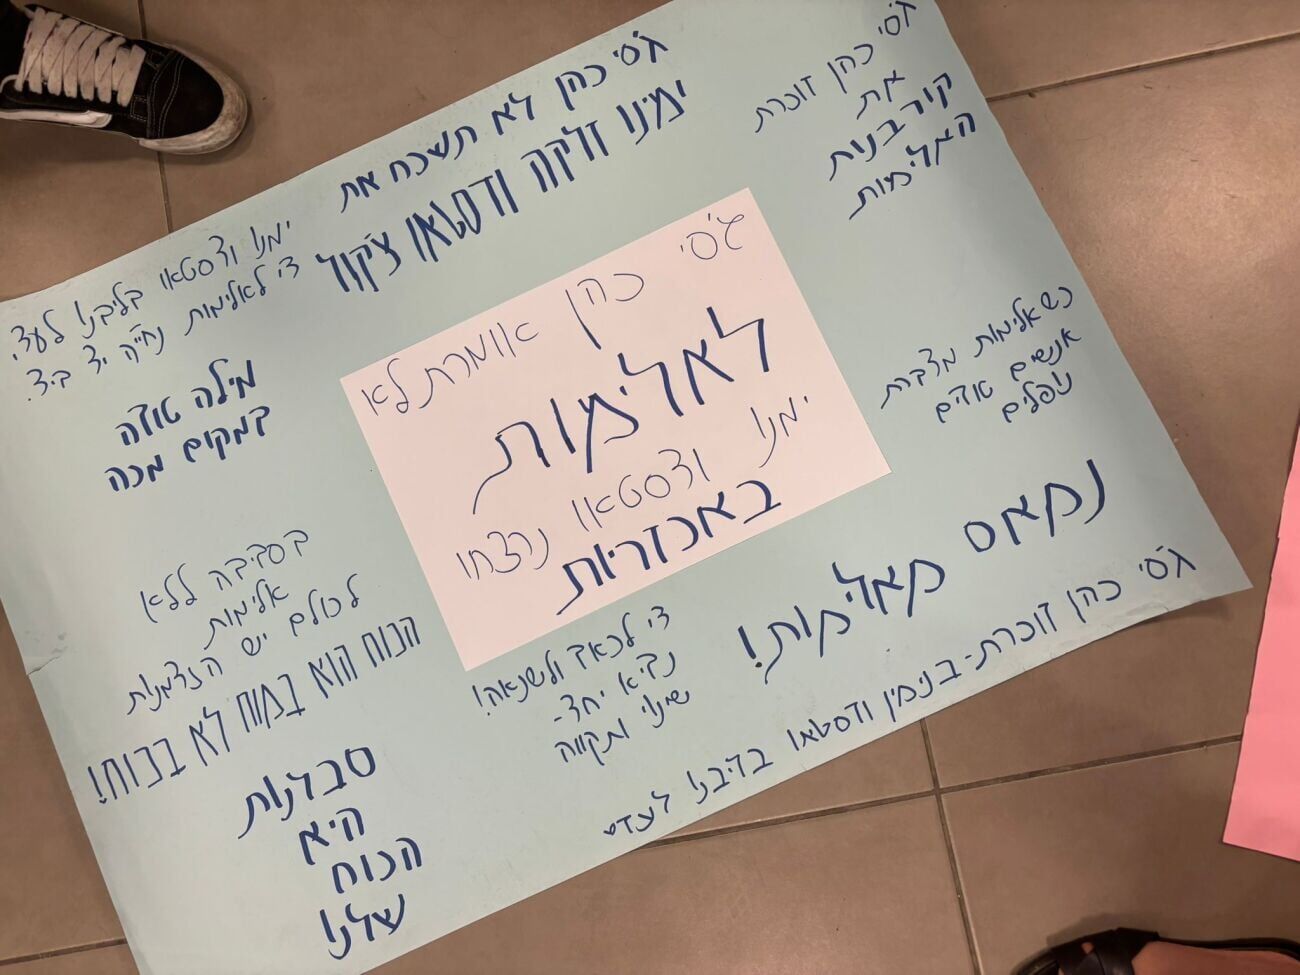 ג'סי כהן לא תשכח את
ימנו זלקה ודסטאו צ'קול
ג'סי כהן זוכרת
את
קורבנות
האלימות
ימנו ודסטאו בליבנו לעד.
די לאלימות נחיה יד ביד.
מילה טובה
במקום מכה
ג'סי
כהן אומרת לא
לאלימות
ימנו
ודסטאו נרצחו
באכזריות
כשאלימות מדברת
אנשים טובים
נופלים
נמאס
מאלימות!
בסביבה ללא
אלימות
לכולם יש הזדמנות
הכוח הוא במוח לא בכוח!
די לכאב ולשנאה!
נביא יחד-
שינוי ותקווה
סבלנות
היא
הכוח
שלנו
ג'סי כהן זוכרת - בנימין ודסטאו בליבנו לעד